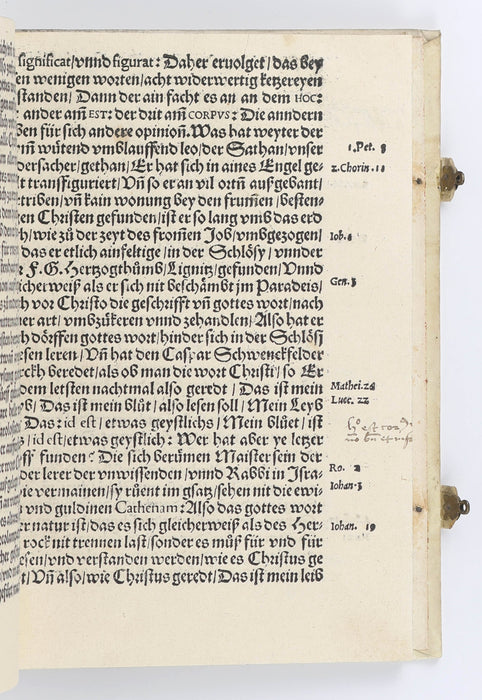 significat/vnnd figurat: Daher eruolget/das bey
en wenigen worten/acht widerwertig ketzereyen
standen/Dann der ain facht es an an dem HOC:
ander am̃ EST: der drit am̃ CORPVS: Die anndern
ben für sich andere opinion. Was hat weyter der
nñ wütend vmblauffend leo/der Sathan/vnser
dersacher/gethan/Er hat sich in aines Engel ge-
1.Pet. 8
t transfiguriert/Vñ so er an vil ortñ aufgebant/
2.Chorin.11
triben/vñ kain wonung bey den frum̃en/besten-
en Christen gefunden/ist er so lang vmb das erd
h/wie zů der zeyt des from̃en Job/vmbgezogen/
Iob.1
das er etlich ainfeltige/in der Schlősy/vnnder
r F.G.Hertzogthůmb/Lignitz/gefunden/Vnnd
icher weiß als er sich nit beschämbt jm Paradeis/
Gen.3
h vor Christo die geschrifft vñ gottes wort/nach
er art/vmbzůkeren vnnd zehandlen/Also hat er
h dőrffen gottes wort/hinder sich in der Schlősj
esen leren/Vñ hat den Caspar Schwenckfelder
rckh beredet/als ob man die wort Christi/so Er
dem letsten nachtmal also geredt/Das ist mein
Mathei.26
b/Das ist mein blůt/also lesen soll/Mein Leyb
Luce. 22
Das: id est/etwas geystlichs/Mein blůet/ist
s/id est/etwas geystlich: Wer hat aber ye letzer
ff funden? Die sich berümen Maister sein der
der lerer der vnwissenden/vnnd Rabbi in Isra-
Ro. 2
ie vermainen/sy růent im gsatz/sehen nit die ewi-
Iohan.3
vnd guldinen Cathenam: Also das gottes wort
er natur ist/das es sich gleicherweiß als des Her-
rock nit trennen last/sonder es můß für vnd für
Iohan. 19
esen/vnd verstanden werden/wie es Christus ge
t/Vñ also/wie Christus geredt/Das ist mein leib